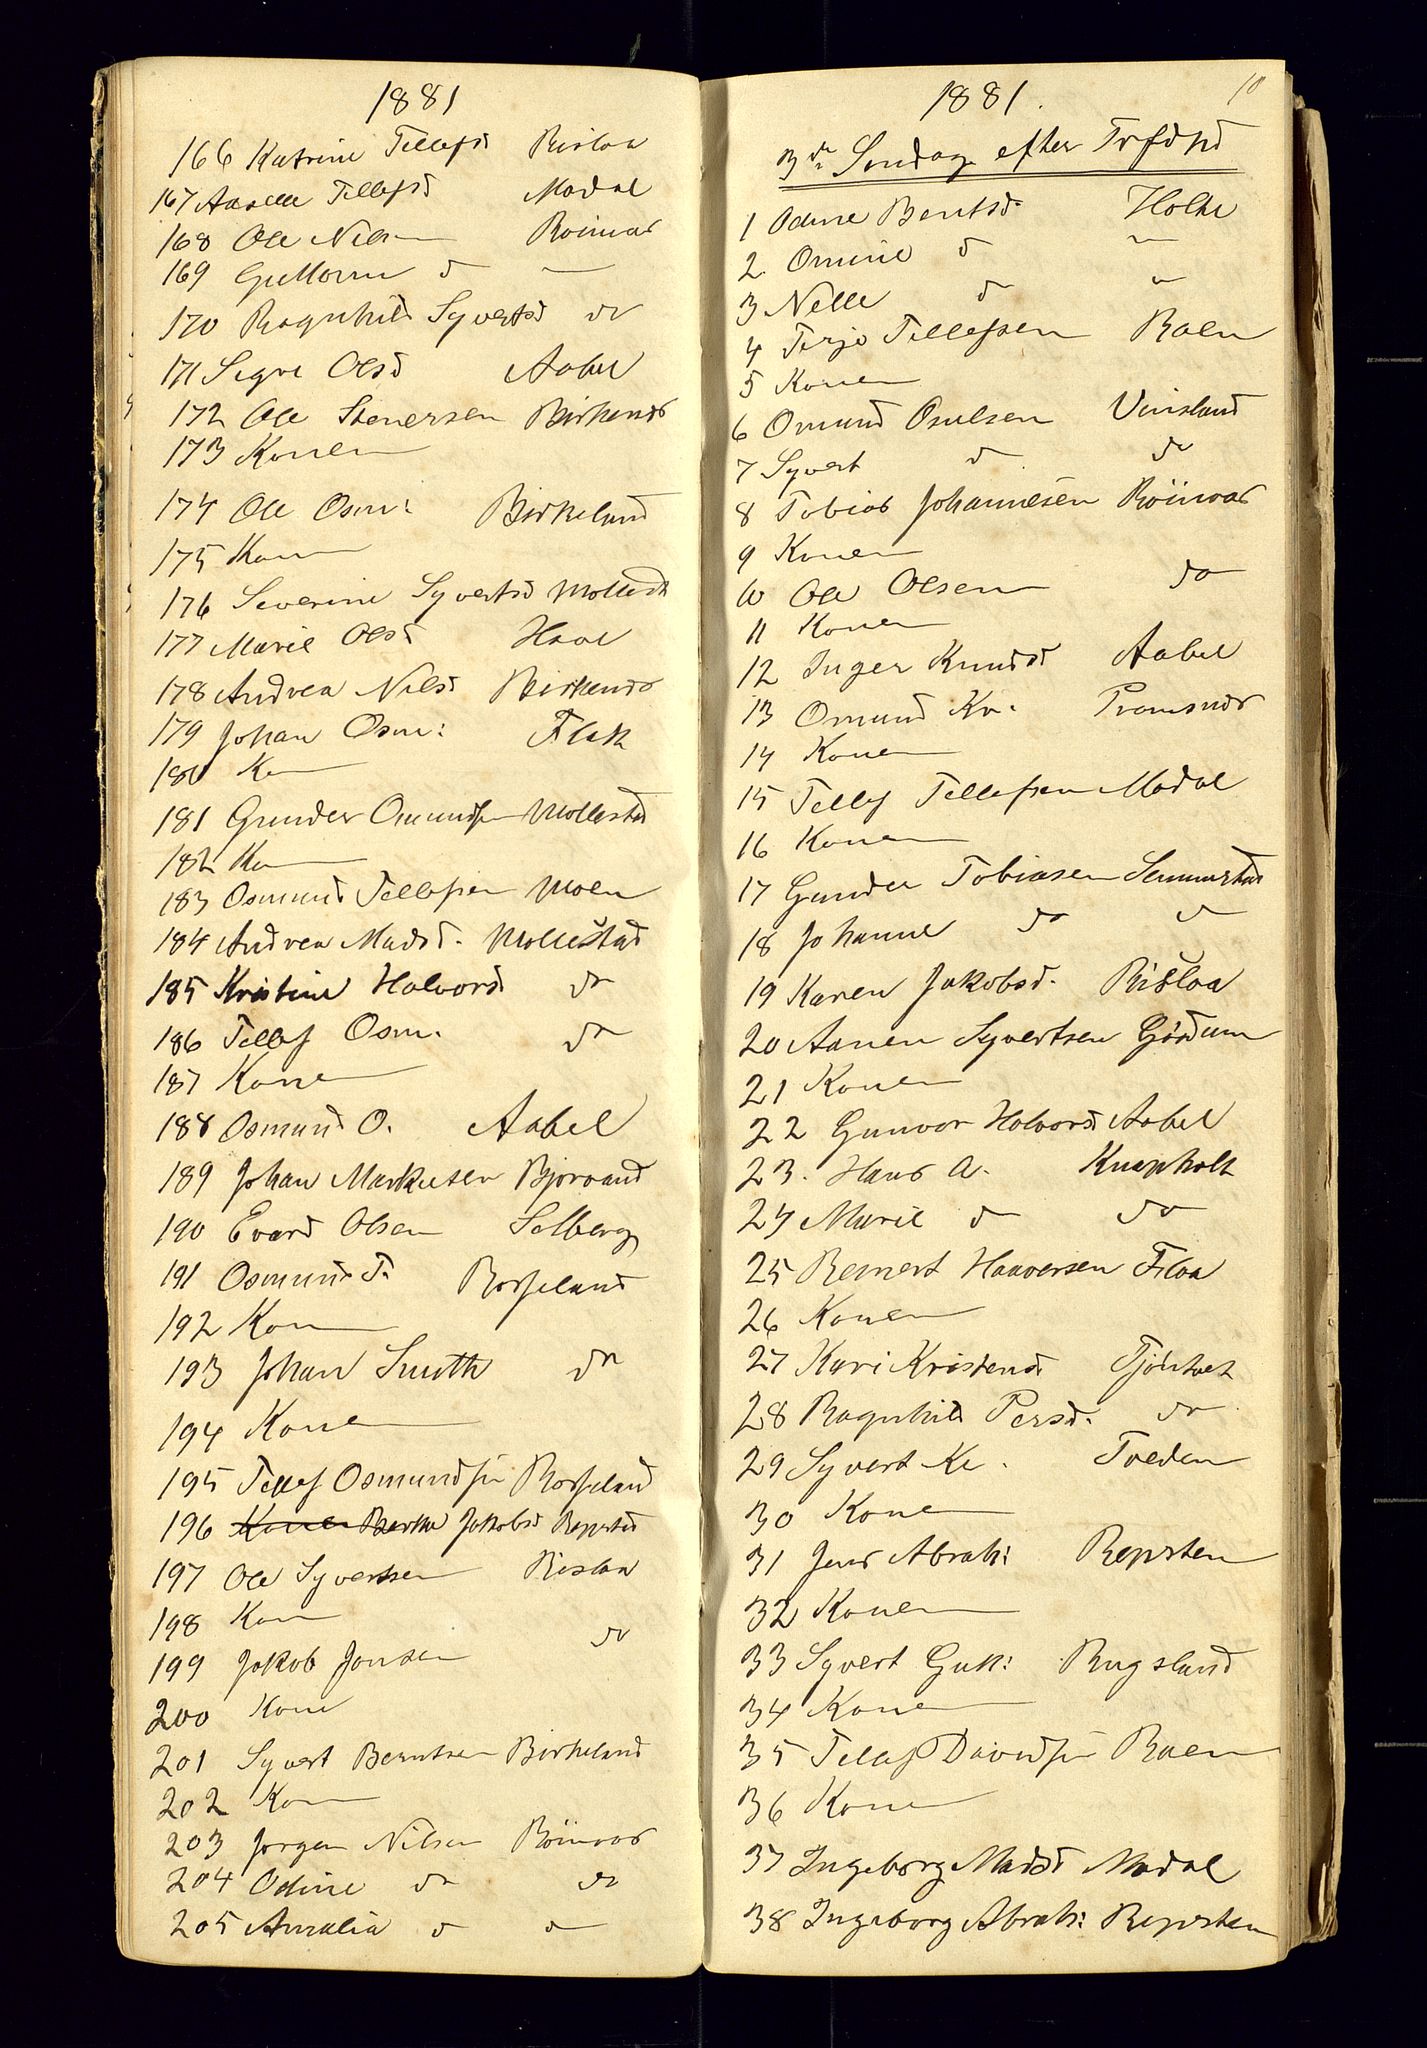 1881
166 Katrine Tellefsd Risloa
167 Aaselle Tellefsd Modal
168 Ole Nilsen Röinaas
169 Guttorm d —
170 Ragnhild Syvertsd do
171 Sigre Olsd Aabel
172 Ole Stenersen Birkenes
173 Konen
174 Ole Osm: Birkeland
175 Kon
176 Severine Syvertsd Mollestd
177 Marie Olsd Haae
178 Andrea Nilsd Birkenes
179 Johan Osm: Flak
180 Ko
181 Gunder Omundsen Mollestad
182 Ko
183 Osmund Tellefsen Moen
184 Andrea Madsd. Mollestad
185 Kristine Halvorsd do
186 Tellef Osm. do
187 Konen
188 Osmund O. Aabel
189 Johan Markusen Bjorvand
190 Evard Olsen Solberg
191 Osmund T. Rosseland
192 Kon
193 Johan Smith do
194 Kone
195 Tellef Osmundsen Rosseland
196 Konen Berthe Jakobsd Repsted
197 Ole Syvertsen Risloa
198 Kon
199 Jakob Jonsen do
200 Kone
201 Syvert Berntsen Birkeland
202 Kon
203 Jorgen Nilsen Röinaas
204 Odine do do
205 Amalia d d
1881. 10
3de Sondag efter Trefdhd
1 Odine Bentsd. Holte
2. Omine d "
3 Nelle d "
4 Terje Tellefsen Raen
5 Konen
6 Omund Osulsen Vinsland
7 Syvert d do
8 Tobias Johannesen Röinaas
9 Konen
10 Ole Olsen do
11 Konen
12 Inger Knudsd Aabel
13 Omund Kr. Pramsnes
14 Konen
15 Tellef Tellefsen Modal
16 Konen
17 Gunder Tobiasen Senumstad
18 Johanne do d
19 Karen Jakobsd. Risloa
20 Aanen Syvertsen Gjödum
21 Konen
22 Gunvor Halvorsd Aabel
23. Hans A. Knapholt
24 Marie d do
25 Reinert Haaversen Floa
26 Konen
27 Kari Kristensd Tjöntvet
28 Ragnhild Persd. do
29 Syvert Kr. Tveden
30 Konen
31 Jens Abrah: Repsten
32 Konen
33 Syvert Guk: Rugsland
34 Konen
35 Tellef Davidsen Raen
36 Kone
37 Ingeborg Madsd Modal
38 Ingeborg Abrah: Repsten